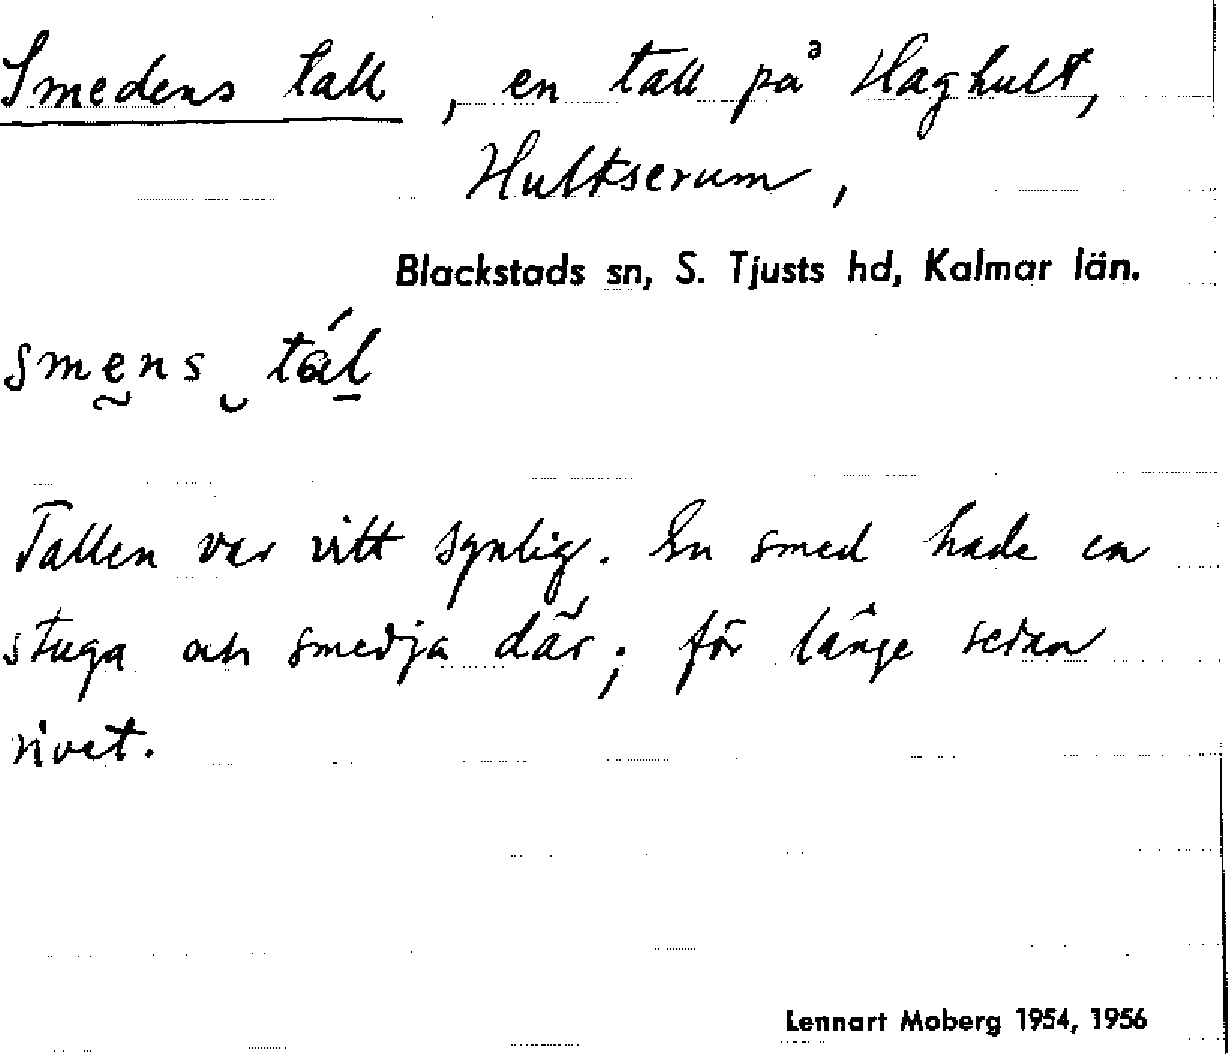 Smedens tall, en tall på Haghult,
Hultserum,
Blackstads sn, S. Tjusts hd, Kalmar län.
smens tál
Tallen var vitt synlig. En smed hade en
stuga och smedja där; för länge sedan
rivet.
Lennart Moberg 1954, 1956